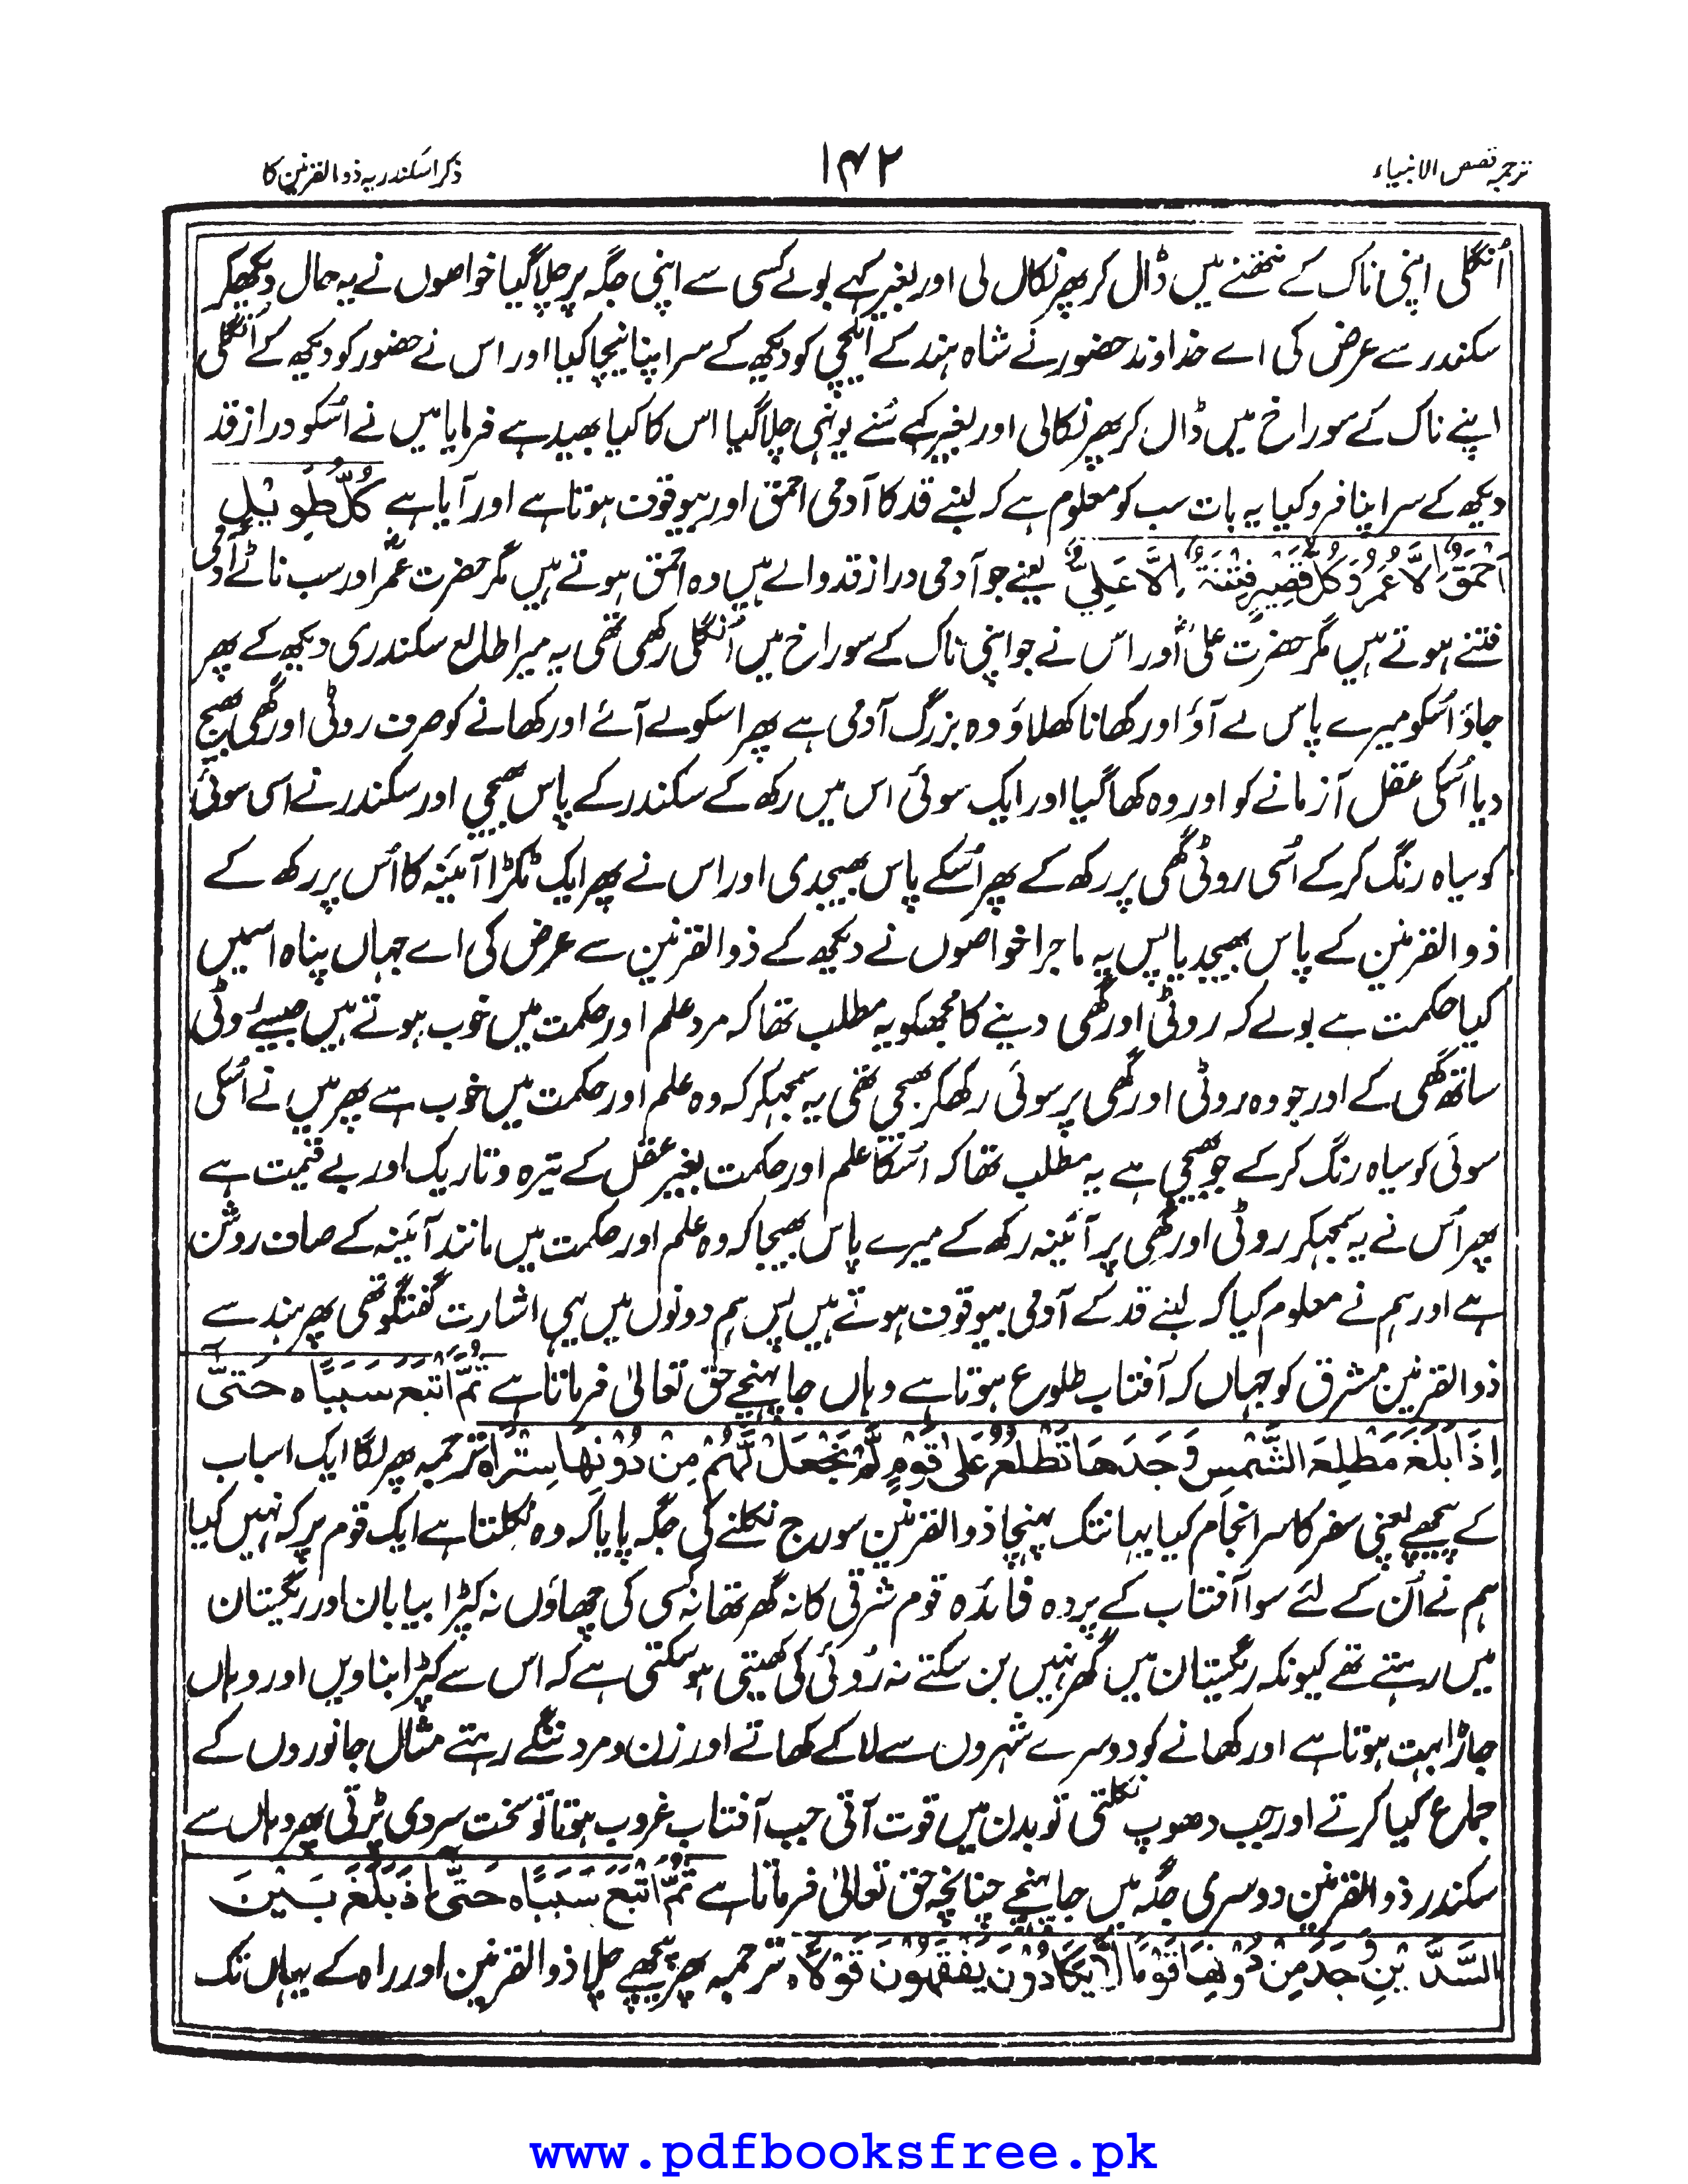 ترجمہ قصص الانبیاء
۱۴۲
ذکر اسکندریہ ذوالقرنین کا
اُنگلی اپنی ناک کے نتھنے میں ڈال کر پھر نکال لی اور بغیر کہے بولے کسی سے اپنی جگہ پر چلا گیا خواصوں نے یہ حال دیکھکر
سکندر سے عرض کی اے خداوند حضور نے شاہ ہند کے ایلچی کو دیکھ کے سر اپنا نیچا کیا اور اس نے حضور کو دیکھ کے اُنگلی
اپنے ناک کے سوراخ میں ڈال کر پھر نکالی اور بغیر کہے سُنے یونہی چلا گیا اس کا کیا بھید ہے فرمایا میں نے اُسکو دراز قد
دیکھ کے سر اپنا فرو کیا یہ بات سب کو معلوم ہے کہ لنبے قد کا آدمی احمق اور بیوقوف ہوتا ہے اور آیا ہے کُلُّ طَوِیْلٍ
اَحْمَقُ اِلَّا عُمَرُ وَکُلُّ قَصِیْرٍ فِتْنَۃٌ اِلَّا عَلِیٌّ یعنے جو آدمی دراز قد والے ہیں وہ احمق ہوتے ہیں مگر حضرت عمرؓ اور سب ناٹے آدمی
فتنے ہوتے ہیں مگر حضرت علیؓ اور اس نے جو اپنی ناک کے سوراخ میں اُنگلی رکھی تھی یہ میرا طالع سکندری دیکھ کے پھر
جاؤ اُسکو میرے پاس لے آؤ اور کھانا کھلاؤ وہ بزرگ آدمی ہے پھر اسکو لے آئے اور کھانے کو صرف روٹی اور گھی بھیج
دیا اُسکی عقل آزمانے کو اور وہ کھا گیا اور ایک سوئی اس میں رکھ کے سکندر کے پاس بھیجی اور سکندر نے اسی سوئی
کو سیاہ رنگ کر کے اُسی روٹی گھی پر رکھ کے پھر اُسکے پاس بھیجدی اور اس نے پھر ایک ٹکڑا آئینہ کا اُس پر رکھ کے
ذوالقرنین کے پاس بھیجدیا پس یہ ماجرا خواصوں نے دیکھ کے ذوالقرنین سے عرض کی اے جہاں پناہ اسمیں
کیا حکمت ہے بولے کہ روٹی اور گھی دینے کا مجھکو یہ مطلب تھا کہ مرد علم اور حکمت میں خوب ہوتے ہیں جیسے روٹی
ساتھ گھی کے اور جو وہ روٹی اور گھی پر سوئی رکھکر بھیجی تھی یہ سمجہکر کہ وہ علم اور حکمت میں خوب ہے پھر میں نے اُسکی
سوئی کو سیاہ رنگ کر کے جو بھیجی ہے یہ مطلب تھا کہ اُسکا علم اور حکمت بغیر عقل کے تیرہ و تاریک اور بے قیمت ہے
پھر اُس نے یہ سمجہکر روٹی اور گھی پر آئینہ رکھ کے میرے پاس بھیجا کہ وہ علم اور حکمت میں مانند آئینہ کے صاف روشن
ہے اور ہم نے معلوم کیا کہ لنبے قد کے آدمی بیوقوف ہوتے ہیں پس ہم دونوں میں یہی اشارت گفتگو تھی پھر ہند سے
ذوالقرنین مشرق کو جہاں کہ آفتاب طلوع ہوتا ہے وہاں جا پہنچے حق تعالیٰ فرماتا ہے ثُمَّ اَتْبَعَ سَبَبًا ہ حَتّیٰٓ
اِذَا بَلَغَ مَطْلِعَ الشَّمْسِ وَجَدَھَا تَطْلُعُ عَلیٰ قَوْمٍ لَّمْ نَجْعَلْ لَّھُمْ مِنْ دُوْنِھَا سِتْرًا ہ ترجمہ پھر لگا ایک اسباب
کے پیچھے یعنی سفر کا سرانجام کیا یہانتک پہنچا ذوالقرنین سورج نکلنے کی جگہ پایا کہ وہ نکلتا ہے ایک قوم پر کہ نہیں کیا
ہم نے اُن کے لئے سوا آفتاب کے پردہ فائدہ قوم شرقی کا نہ گھر تھا نہ کسی کی چھاؤں نہ کپڑا بیابان اور ریگستان
میں رہتے تھے کیونکہ ریگستان میں گھر نہیں بن سکتے نہ رُوئی کی کھیتی ہو سکتی ہے کہ اس سے کپڑا بناویں اور وہاں
جاڑا بہت ہوتا ہے اور کھانے کو دوسرے شہروں سے لا کے کھاتے اور زن و مرد ننگے رہتے مثال جانوروں کے
جماع کیا کرتے اور جب دھوپ نکلتی تو بدن میں قوت آتی جب آفتاب غروب ہوتا تو سخت سردی پڑتی پھر وہاں سے
سکندر ذوالقرنین دوسری جگہ میں جا پہنچے چنانچہ حق تعالیٰ فرماتا ہے ثُمَّ اَتْبَعَ سَبَبًا ہ حَتّیٰٓ اِذَا بَلَغَ بَیْنَ
السَّدَّیْنِ وَجَدَ مِنْ دُوْنِھِمَا قَوْمًا لَّا یَکَادُوْنَ یَفْقَھُوْنَ قَوْلًا ہ ترجمہ پھر پیچھے چلا ذوالقرنین اور راہ کے یہاں تک
www.pdfbooksfree.pk